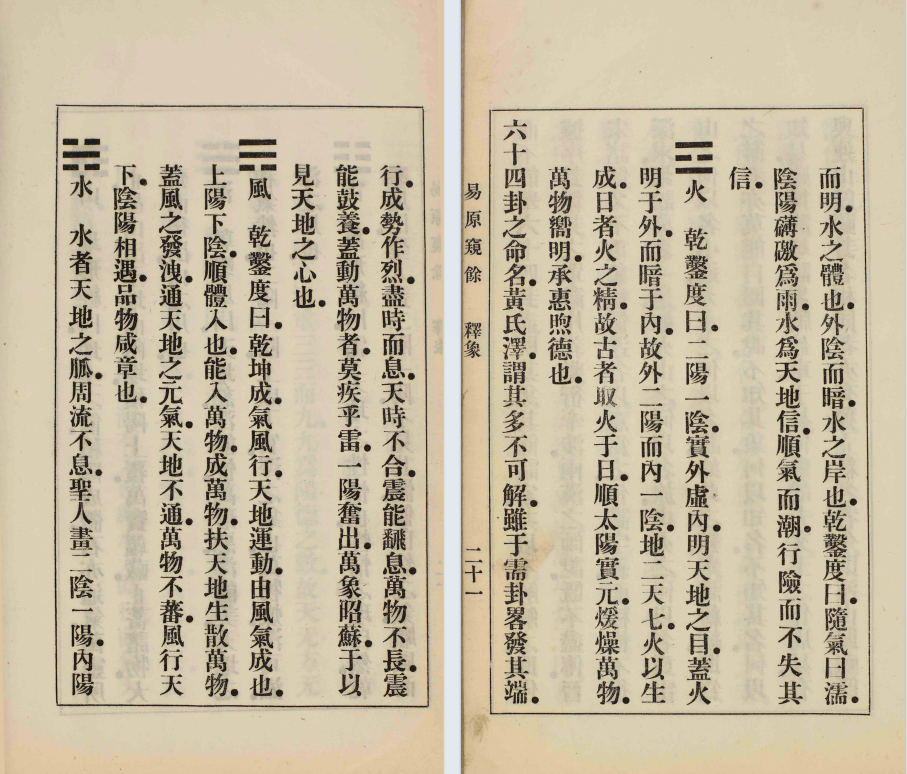 行。成勢作烈。盡時而息。天時不合。震能飜息。萬物不長。震
能鼓養。蓋動萬物者。莫疾乎雷。一陽奮出。萬象昭蘇。于以
見天地之心也。
☴風 乾鑿度曰。乾坤成氣。風行天地。運動由風氣成也。
上陽下陰。順體入也。能入萬物。成萬物。扶天地生散萬物。
蓋風之發洩。通天地之元氣。天地不通。萬物不蕃。風行天
下。陰陽相遇。品物咸章也。
☵水 水者天地之脈。周流不息。聖人畫二陰一陽。內陽
而明。水之體也。外陰而暗。水之岸也。乾鑿度曰。隨氣曰濡。
陰陽礴礉爲雨。水爲天地信。順氣而潮。行險而不失其
信。
☲火 乾鑿度曰。二陽一陰。實外虛內。明天地之目。蓋火
明于外。而暗于內。故外二陽而內一陰。地二天七。火以生
成。日者火之精。故古者取火于日。順太陽實元。煖燥萬物。
萬物嚮明。承惠煦德也。
六十四卦之命名。黃氏澤。謂其多不可解。雖于需卦畧發其端。
易原窺餘 釋象 二十一